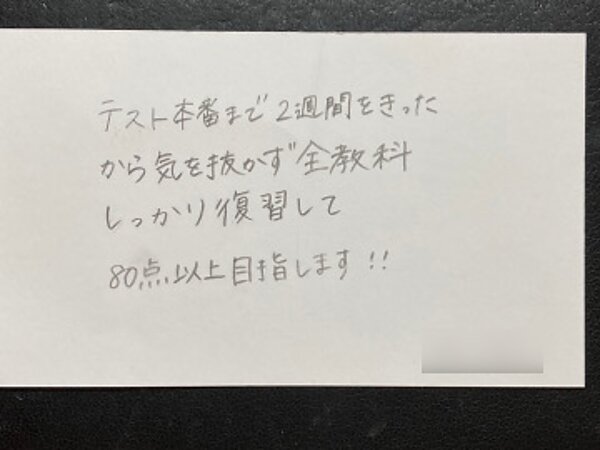 テスト本番まで2週間をきった
から気を抜かず全教科
しっかり復習して
80点以上目指します!!